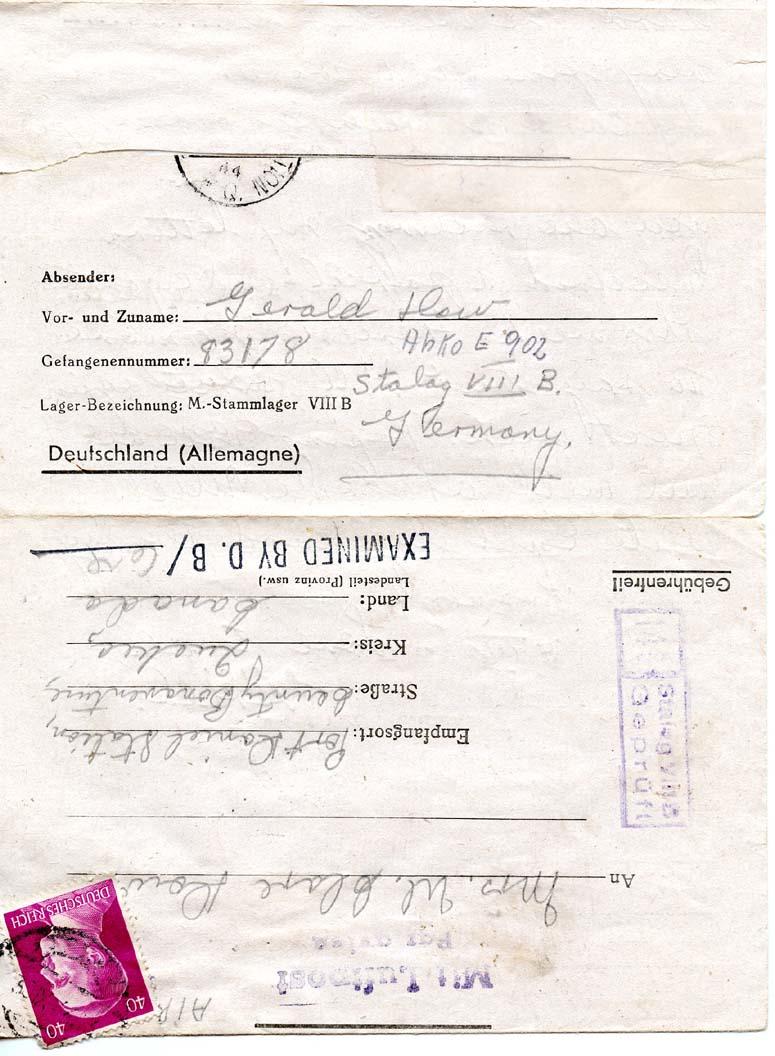 44
Absender:
Vor- und Zuname: Gerald Dow
Gefangenennummer: 83178
AbKo E 902
Lager-Bezeichnung: M.-Stammlager VIII B
Stalag VIII B.
Deutschland (Allemagne)
Germany.
Mit Luftpost
Par avion
AIR
DEUTSCHES REICH
40
40
An Mrs. W. Dow
Empfangsort: Port Daniel Station,
Straße: County Bonaventure,
Kreis: Quebec,
Land: Canada
Landesteil (Provinz usw.)
Gebührenfrei!
Stalag VIIIB
Geprüft
EXAMINED BY D. B/